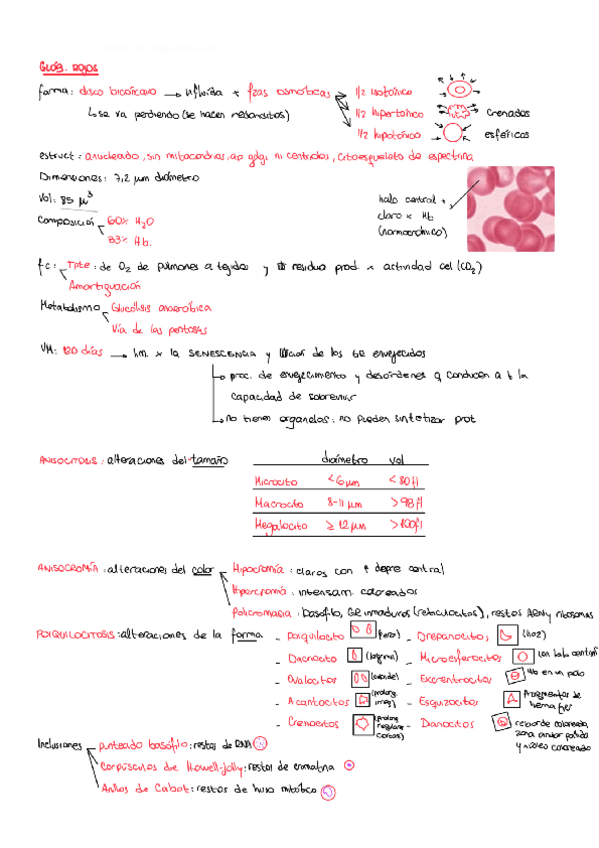 GLÓB. ROJOS
forma: disco bicóncavo → influida x fzas osmóticas → 1/2 isotónico
1/2 hipertónico crenados
1/2 hipotónico esféricos
↳ se va perdiendo (se hacen redonditos)
estruct: anucleado, sin mitocondrias, ap golgi ni centriolos, citoesqueleto de espectrina
Dimensiones: 7,2 µm diámetro
Vol: 85 µ³
Composición 60% H2O
33% Hb.
halo central +
claro x Hb
(normocrómico)
fc: Tpte: de O2 de pulmones a tejidos y residuo prod x actividad cel (CO2)
Amortiguación
Metabolismo Glucólisis anaeróbica
Vía de las pentosas
VM: 120 días → lim. x la SENESCENCIA y de los GR envejecidos
↳ proc. de envejecimiento y desórdenes q conducen a ↓ la
capacidad de sobrevivir
↳ no tienen organelas: no pueden sintetizar prot
ANISOCITOSIS: alteraciones del tamaño
diámetro vol
Microcito <6 µm <80 fl
Macrocito 8-11 µm >98 fl
Megalocito ≥ 12 µm >100 fl
ANISOCROMÍA: alteraciones del color
Hipocromía: claros con ↑ depre central
Hipercromía: intensam. coloreados
Policromasia: basófilo, GR inmaduros (reticulocitos), restos ARNr y ribosomas
POIQUILOCITOSIS: alteraciones de la forma
- Poiquilocito (pera) - Drepanocitos, (hoz)
- Dacriocito (lágrima) - Microesferocitos
- Ovalocitos (ovoide) - Excentrocitos Hb en un polo
- Acantocitos (prolong. irreg) - Esquizocitos Fragmentos de
- Crenocitos (prolong regulares cortas) - Dianocitos reborde coloreado,
zona anular pálida
y núcleo coloreado
Inclusiones punteado basófilo: restos de RNA
Corpúsculos de Howell-Jolly: restos de cromatina
Anillos de Cabot: restos de huso mitótico